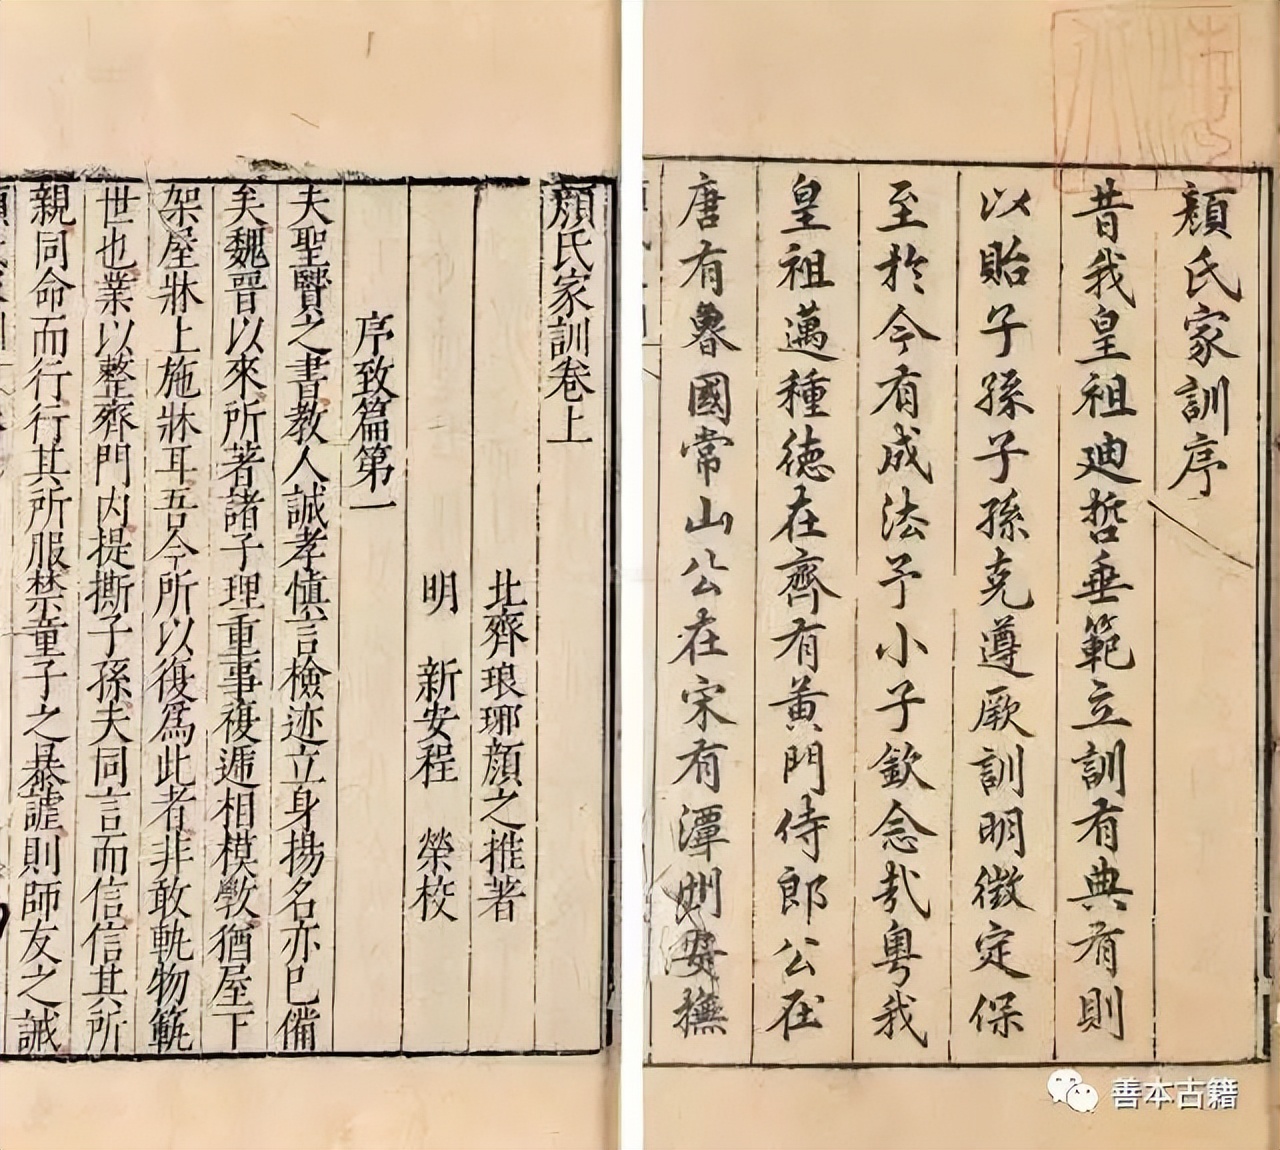 顏氏家訓序
昔我皇祖廸哲垂範立訓有典有則
以貽子孫子孫克遵厥訓明徵定保
至於今有成法予小子欽念㢤粤我
皇祖邁種德在齊有黃門侍郎公在
唐有魯國常山公在宋有潭州安撫
顏氏家訓卷上
北齊琅琊顏之推著
明 新安程 榮校
序致篇第一
夫聖賢之書教人誠孝慎言檢迹立身揚名亦已備
矣魏晉以來所著諸子理重事複遞相模斆猶屋下
架屋牀上施牀耳吾今所以復爲此者非敢軌物範
世也業以整齊門內提撕子孫夫同言而信信其所
親同命而行行其所服禁童子之暴謔則師友之誡
善本古籍